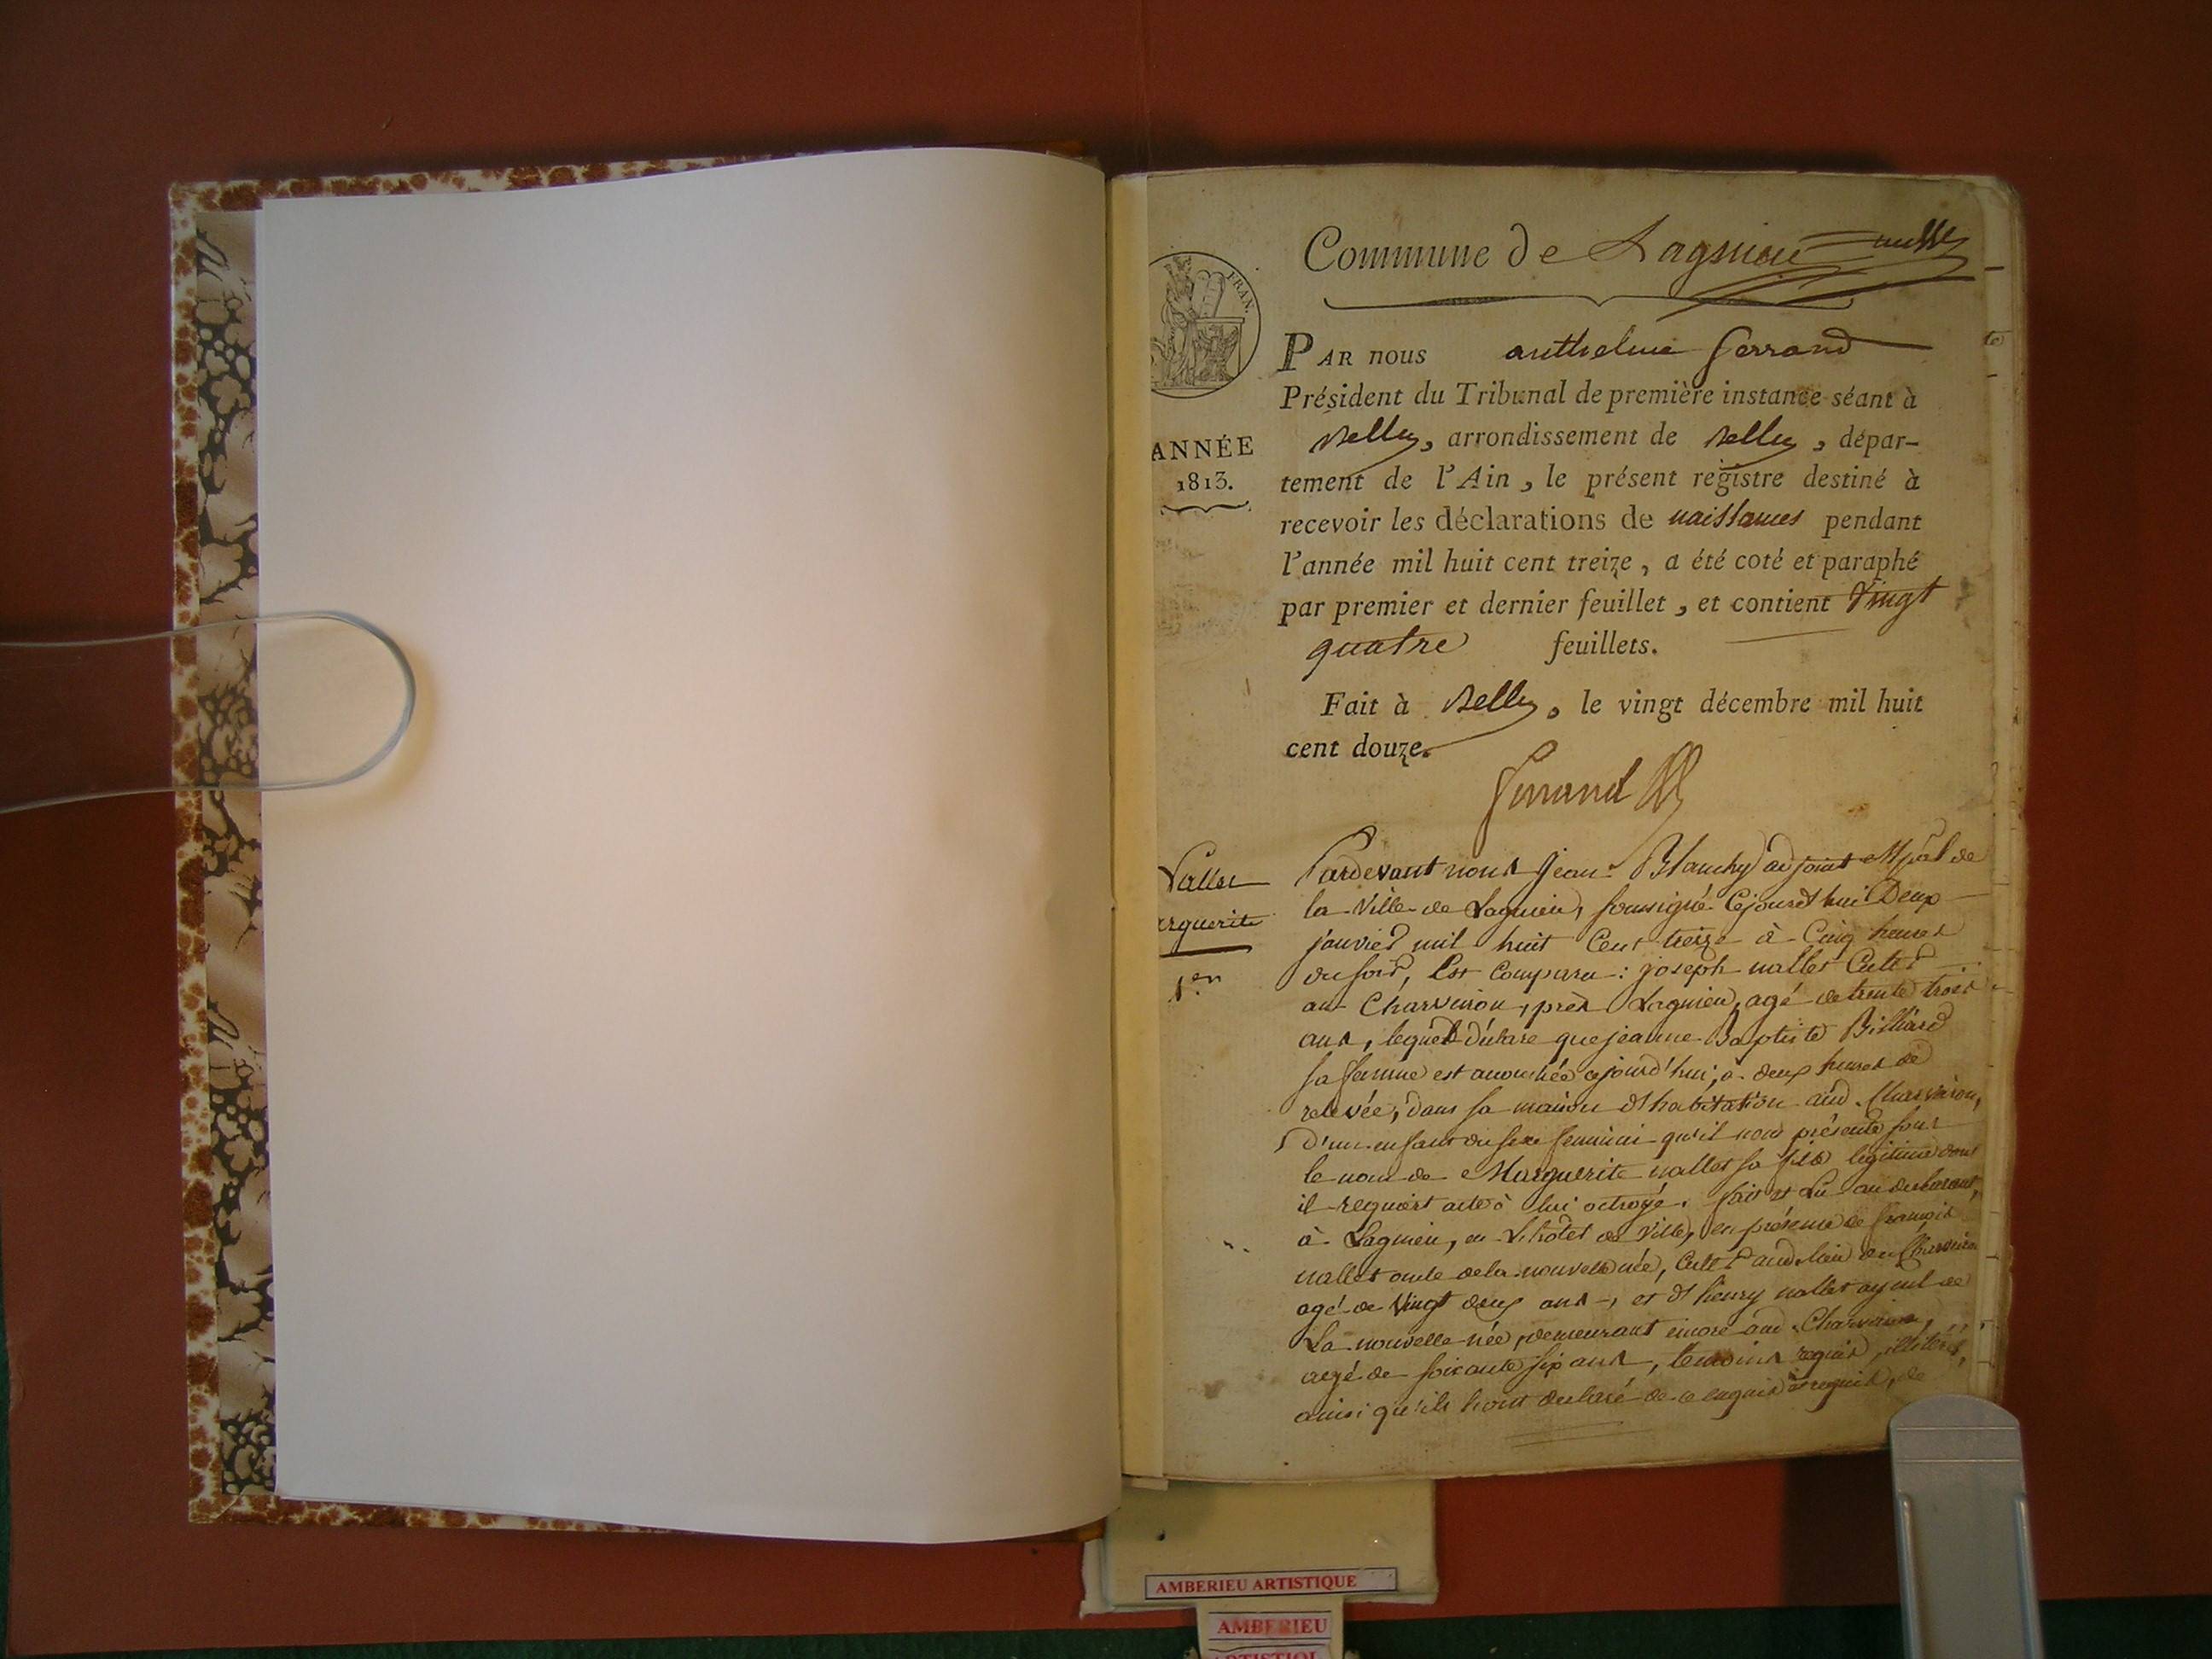 Commune de Lagnieu
FRAN.
PAR nous anthelme ferrand
Président du Tribunal de première instance séant à
Belley, arrondissement de Belley, dépar-
ANNÉE
1813.
tement de l'Ain, le présent registre destiné à
recevoir les déclarations de naissances pendant
l'année mil huit cent treize, a été coté et paraphé
par premier et dernier feuillet, et contient Vingt
quatre feuillets.
Fait à Belley, le vingt décembre mil huit
cent douze.
ferrand
Nallet
arguerite
1.er
Pardevant nous Jean Blanchy adjoint Mpal de
la Ville de Lagnieu, soussigné. Cejourd'hui Deux
janvier mil huit Cent treize à Cinq heures
du soir, Est Comparu : joseph nallet Cultr
au Charveiron, près Lagnieu, agé de trente trois
ans, lequel déclare que jeanne Baptiste Billiard
sa femme est accouchée cejourd'hui, à deux heures de
relevée, dans sa maison d'habitation aud. Charveiron,
D'un enfant du sexe feminin qu'il nous présente sous
le nom de Marguerite nallet sa fille légitime dont
il requiert acte à lui octroyé. fait et Lu au declarant,
à Lagnieu, en L'hotel de Ville, en présence de françois
nallet oncle de la nouvelle née, Cultr aud. lieu du Charveiron
agé de Vingt deux ans, et d'henry nallet ayeul de
La nouvelle née, demeurant encore aud. Charveiron,
agé de soixante six ans, temoins requis, illiterés,
ainsi qu'ils l'ont declaré de ce enquis et requis, de
AMBERIEU ARTISTIQUE
AMBERIEU